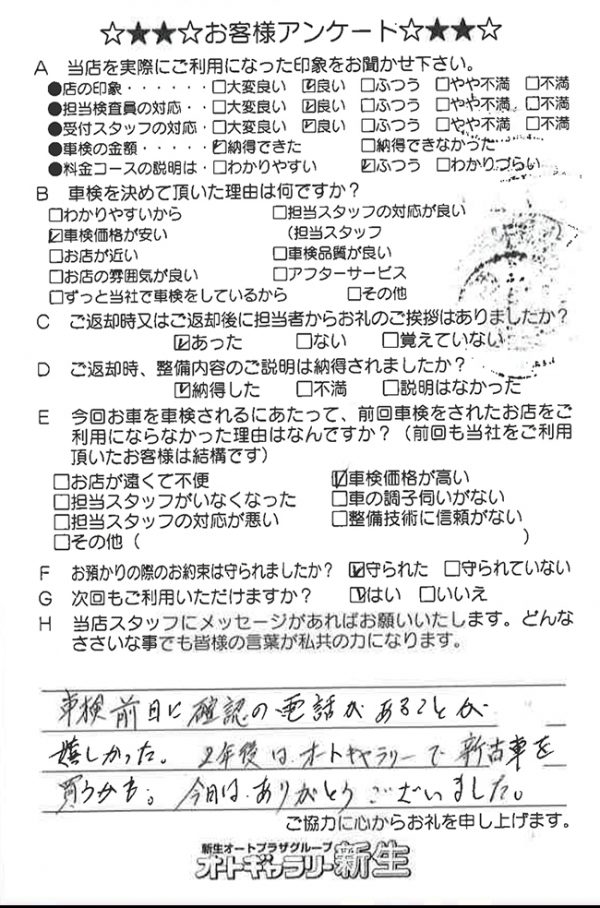 ☆★★☆お客様アンケート☆★★☆
A 当店を実際にご利用になった印象をお聞かせ下さい。
●店の印象・・・・・・□大変良い ☑良い □ふつう □やや不満 □不満
●担当検査員の対応・・□大変良い ☑良い □ふつう □やや不満 □不満
●受付スタッフの対応・□大変良い ☑良い □ふつう □やや不満 □不満
●車検の金額・・・・・☑納得できた □納得できなかった
●料金コースの説明は・□わかりやすい ☑ふつう □わかりづらい
B 車検を決めて頂いた理由は何ですか？
□わかりやすいから □担当スタッフの対応が良い
☑車検価格が安い （担当スタッフ
□お店が近い □車検品質が良い
□お店の雰囲気が良い □アフターサービス
□ずっと当社で車検をしているから □その他
C ご返却時又はご返却後に担当者からお礼のご挨拶はありましたか？
☑あった □ない □覚えていない
D ご返却時、整備内容のご説明は納得されましたか？
☑納得した □不満 □説明はなかった
E 今回お車を車検されるにあたって、前回車検をされたお店をご
利用にならなかった理由はなんですか？（前回も当社をご利用
頂いたお客様は結構です）
□お店が遠くて不便 ☑車検価格が高い
□担当スタッフがいなくなった □車の調子伺いがない
□担当スタッフの対応が悪い □整備技術に信頼がない
□その他（ ）
F お預かりの際のお約束は守られましたか？ ☑守られた □守られていない
G 次回もご利用いただけますか？ ☑はい □いいえ
H 当店スタッフにメッセージがあればお願いいたします。どんな
ささいな事でも皆様の言葉が私共の力になります。
車検前日に確認の電話があることが
嬉しかった。2年後は、オートギャラリーで新古車を
買うかも。今回は、ありがとうございました。
ご協力に心からお礼を申し上げます。
新生オートプラザグループ
オートギャラリー新生